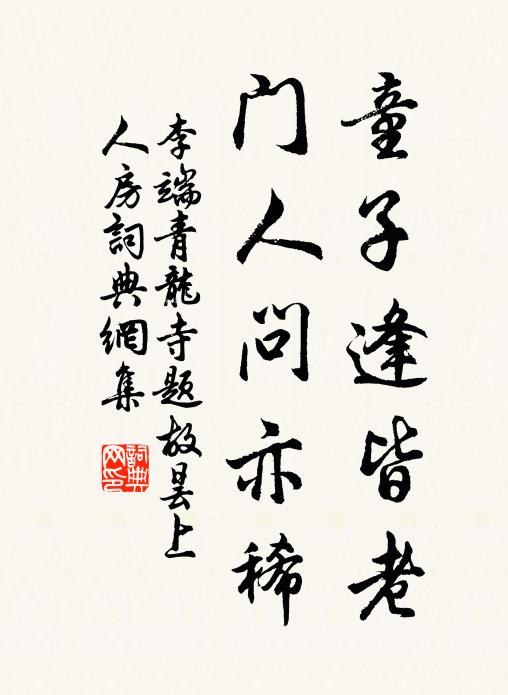 童子逢皆老
門人問亦稀
李端青龍寺題故曇上
人房詞典網集
詞典
网印